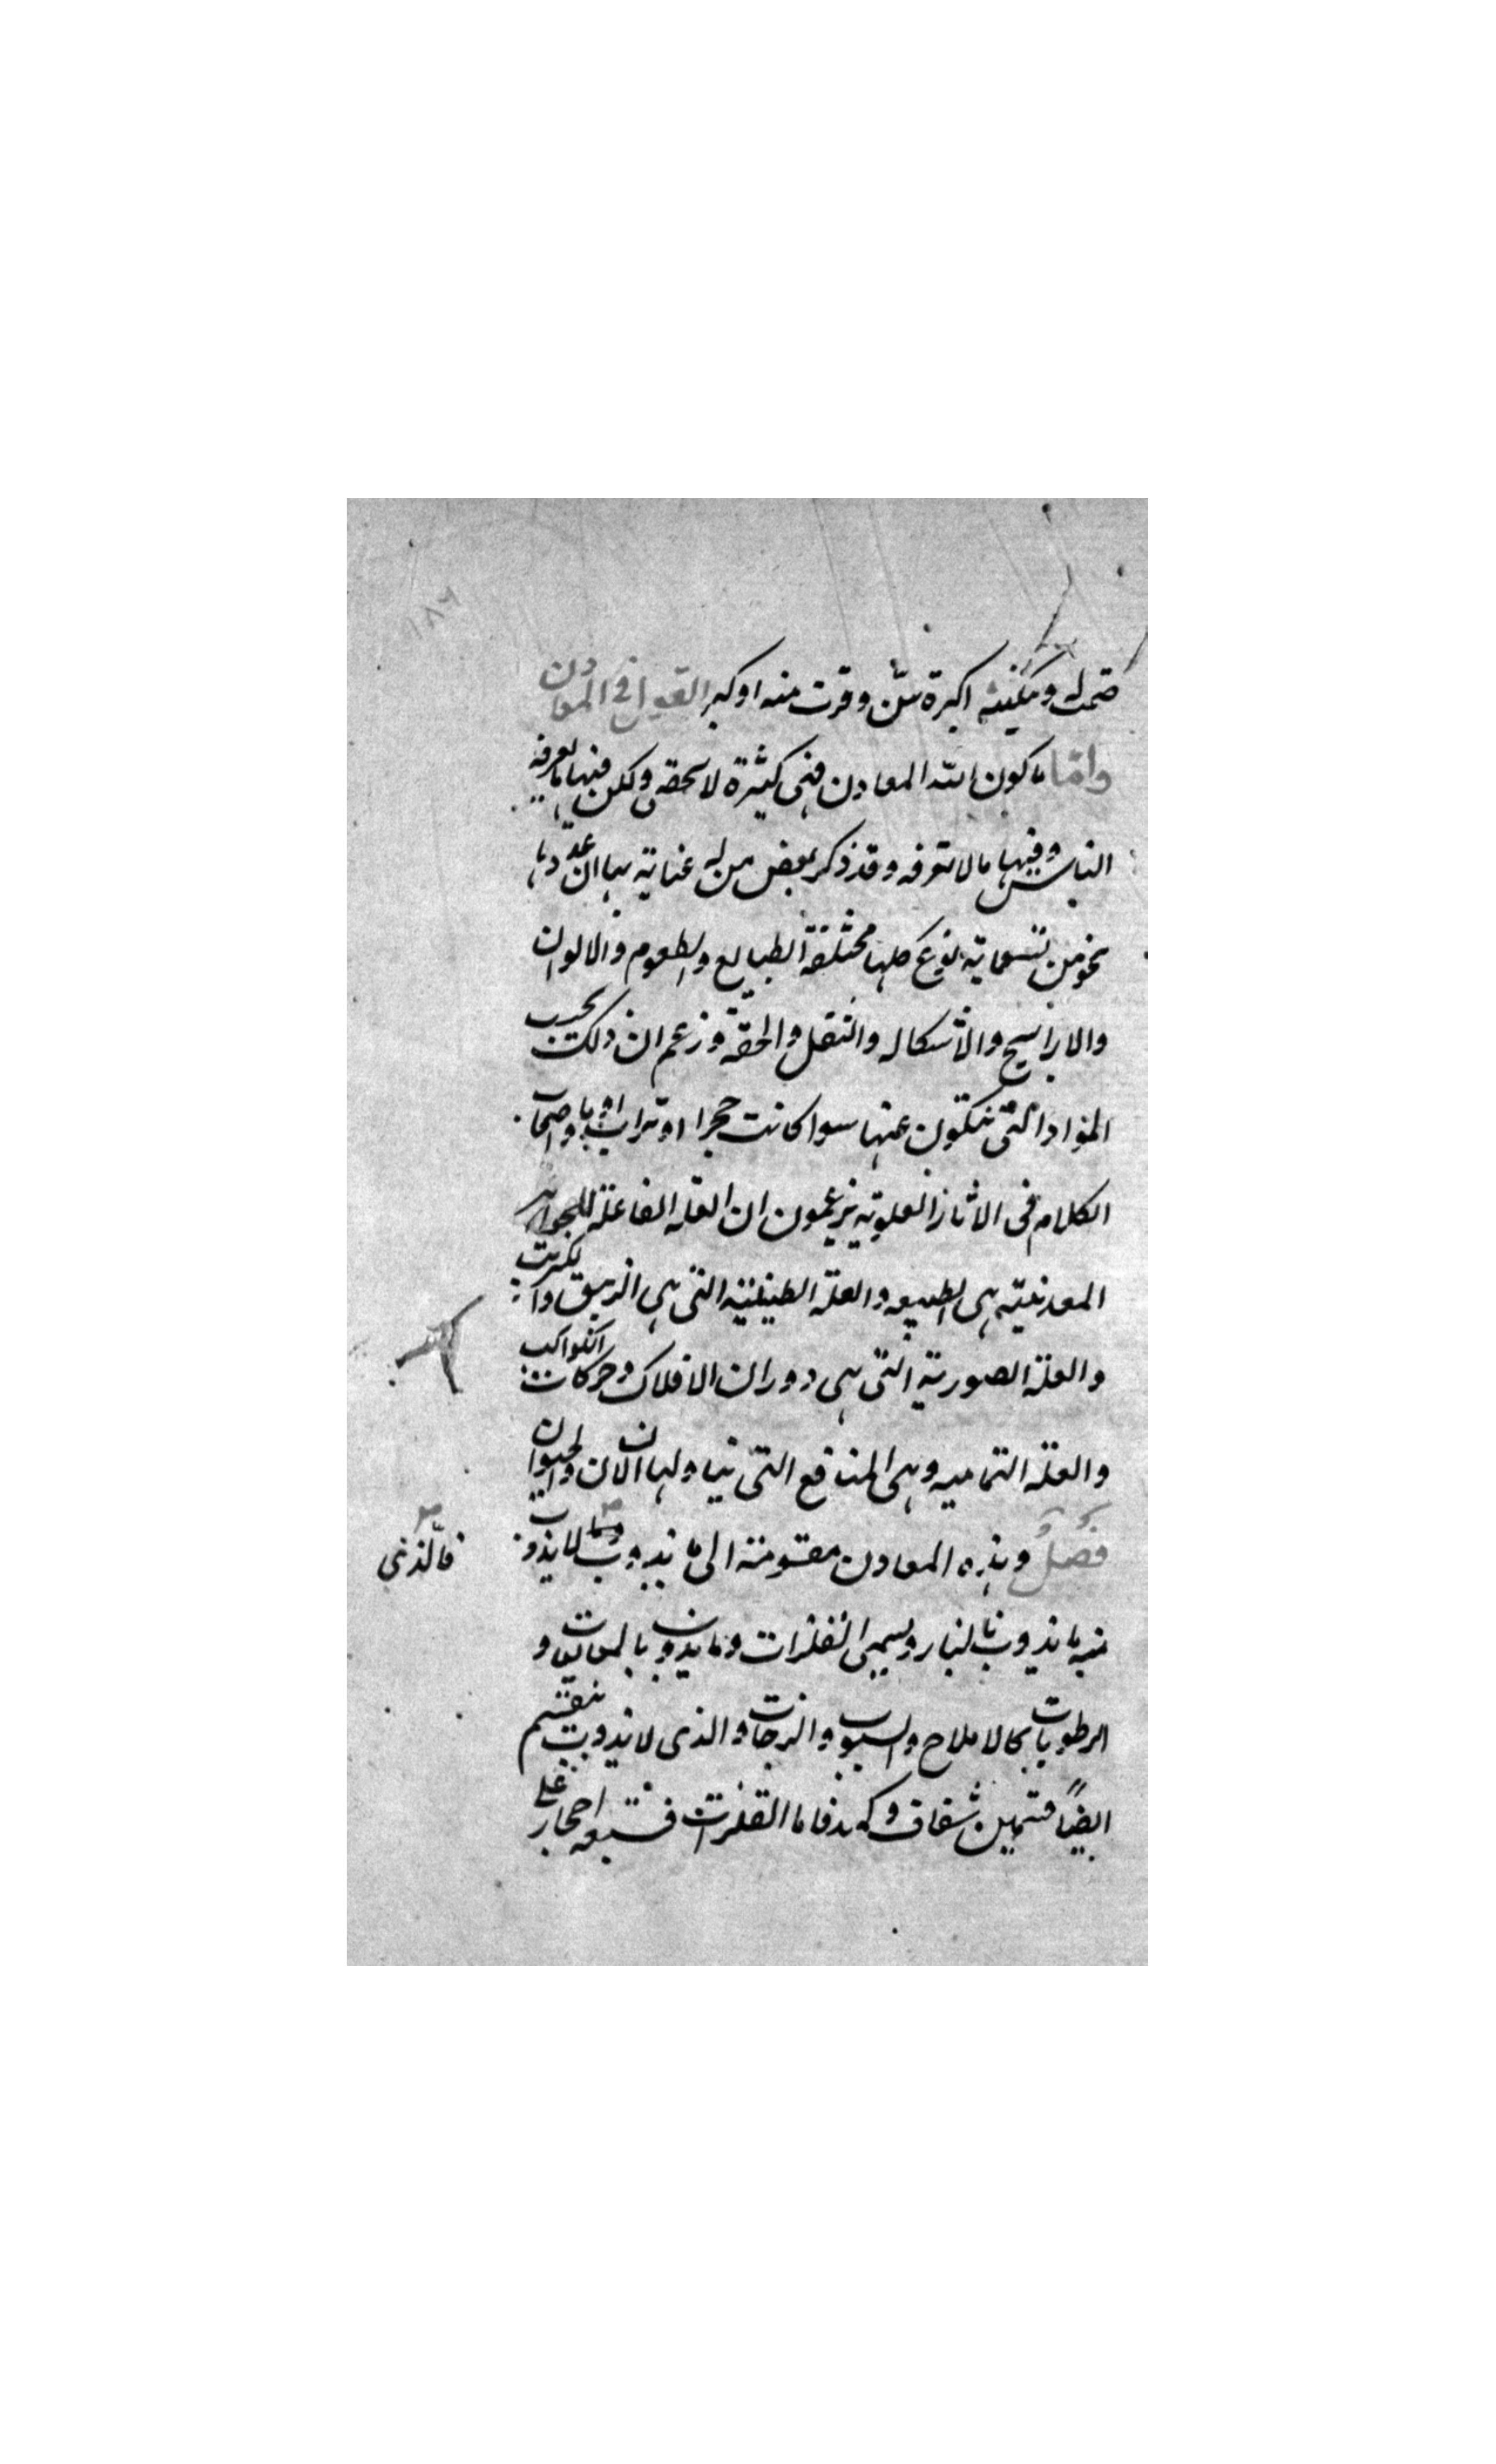 ضمت له وبكفيه اكبرة سن وقرت منه او كبر القول في المعادن
واما ما كون الله المعادن فهي كثيرة لا تحصى ولكن فيها ما يعرفه
الناس وفيها ما لا تعرفه وقد ذكر بعض من له عناية بها ان عددها
نحو من تسعماية نوع كلها مختلفة الطبايع والطعوم والالوان
والاراييح والاشكال والثقل والخفة وزعم ان ذلك بحسب
المواد التي تتكون عنها سوا كانت حجرا او ترابا واصحاب
الكلام في الاثار العلوية يزعمون ان العلة الفاعلة للجواهر
المعدنية هي الطبيعة والعلة الطينية التي هي الزيبق والكبريت
والعلة الصورية التي هي دوران الافلاك وحركات الكواكب
والعلة التمامية وهي المنافع التي يناولها الانسان والحيوان
فصل وهذه المعادن مقسومة الى ما يذوب وما لا يذوب
فالذي
منه ما يذوب بالنار ويسمى الفلزات وما يذوب بالمعايب و
الرطوبات كالاملاح والشبوب والزجات والذي لا يذوب ينقسم
ايضا قسمين شفاف وكهدفاما الفلزات فسبعة احجار على